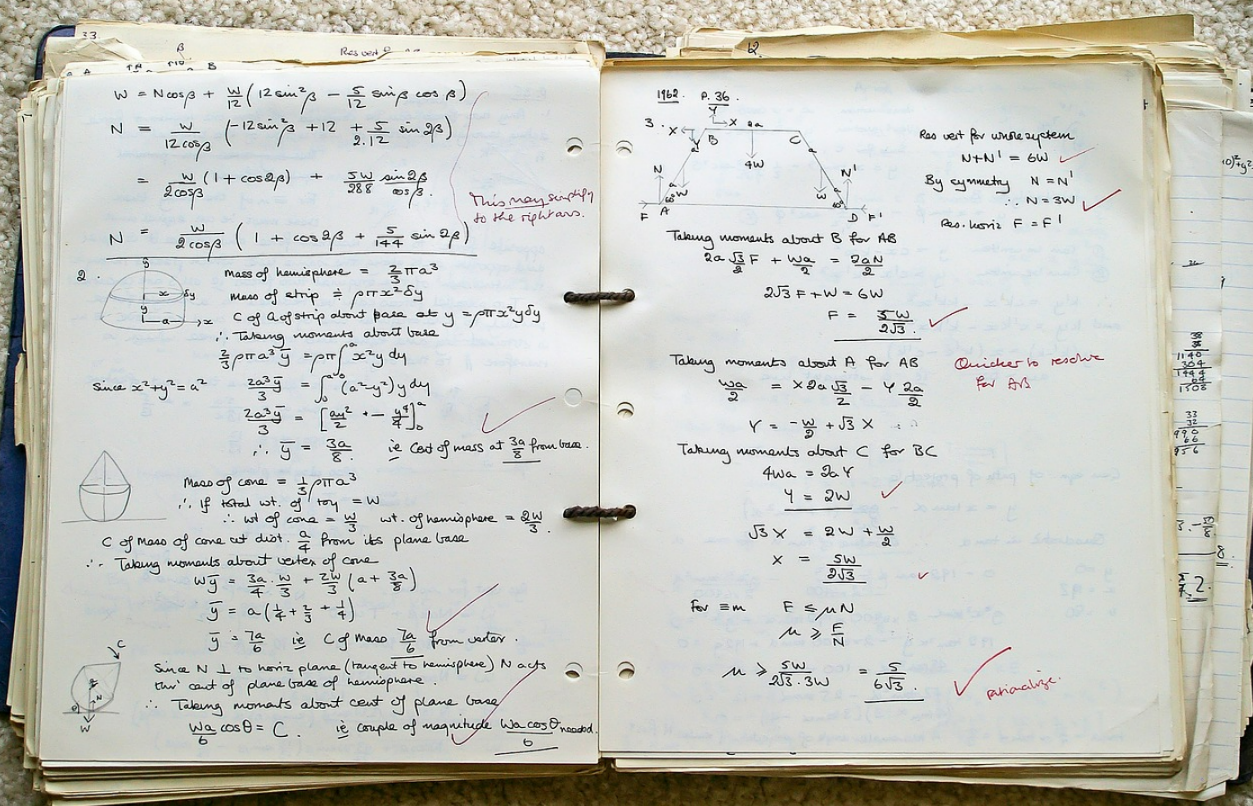 33
β
Res vert
B
W = Ncosβ + W/12 (12sin²β − 5/12 sinβ cosβ)
N = W/12cosβ (−12sin²β + 12 + 5/2.12 sin2β)
= W/2cosβ (1 + cos2β) + 5W/288 sin2β/cosβ.
This may simplify
to the right ans.
N = W/2cosβ (1 + cos2β + 5/144 sin2β)
2.
y
x
δy
y
a
x
mass of hemisphere = 2/3 πa³
mass of strip ≑ ρπx²δy
C of G of strip about base at y = ρπx²yδy
∴ Taking moments about base
2/3 ρπa³ȳ = ρπ∫₀ᵃ x²y dy
Since x²+y²=a² 2a³ȳ/3 = ∫₀ᵃ (a²−y²)y dy
2a³ȳ/3 = [ay²/2 − y⁴/4]₀ᵃ
∴ ȳ = 3a/8. ie Cent of mass at 3a/8 from base.
Mass of cone = 1/3 ρπa³
∴ If total wt. of toy = W
∴ wt of cone = W/3 wt. of hemisphere = 2W/3.
C of Mass of cone at dist. a/4 from its plane base
∴ Taking moments about vertex of cone
Wȳ = 3a/4 . W/3 + 2W/3 (a + 3a/8)
ȳ = a(1/4 + 2/3 + 1/4)
ȳ = 7a/6 ie C of Mass 7a/6 from vertex.
C
N
W
Since N ⊥ to horiz plane (tangent to hemisphere) N acts
thro' cent of plane base of hemisphere.
∴ Taking moments about cent of plane base
Wa/6 cosθ = C. ie couple of magnitude Wa cosθ/6 needed.
12.
1962. P. 36.
3.
Y
X 2a
X
Y
B
C
a
a
4W
N
N'
a
a
W
W
F
A
D
F'
Res vert for whole system
N+N' = 6W
By symmetry N = N'
∴ N = 3W
Res. horiz F = F'
Taking moments about B for AB
2a √3/2 F + Wa/2 = 2aN/2
2√3 F + W = 6W
F = 5W/2√3.
Taking moments about A for AB
Quicker to resolve
for AB
Wa/2 = X2a √3/2 − Y 2a/2
Y = −W/2 + √3 X
Taking moments about C for BC
4Wa = 2aY
Y = 2W
√3 X = 2W + W/2
X = 5W/2√3
for ≡m F ≤ μN
μ ≥ F/N
μ ≥ 5W/2√3.3W = 5/6√3.
rationalize.
38
38
1140
304
1444
64
1508
33
32
990
66
8.
2.